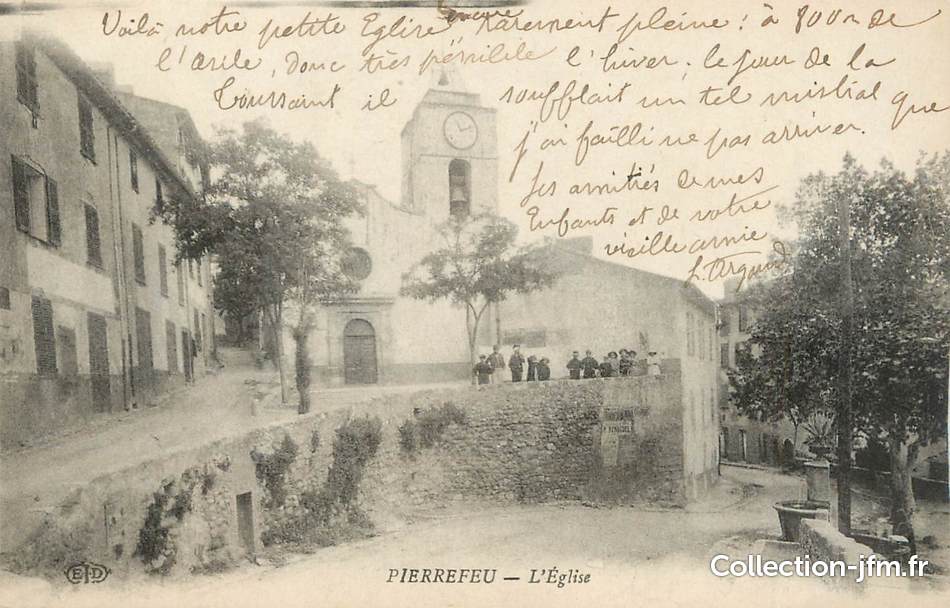 Voilà notre petite Eglise, encore rarement pleine : à 800m de
l'asile, donc très pénible l'hiver ; le jour de la
Toussaint il soufflait un tel mistral que
j'ai failli ne pas arriver.
Les amitiés de mes
Enfants et de votre
vieille amie
L. Argaud
PIERREFEU — L'Église
ELD
Collection-jfm.fr